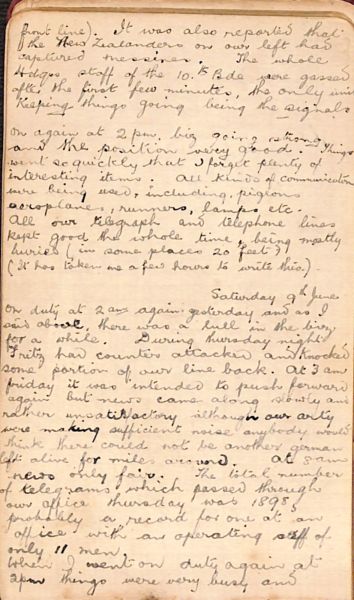 front line). It was also reported that
the New Zealanders on our left had
captured Messines. The whole
Hdqs. staff of the 10th Bde were gassed
after the first few minutes, the only unit
keeping things going being the signals
on again at 2 pm. biz going strong
and the position very good. Things
went so quickly that I forget plenty of
interesting items. All kinds of communication
were being used, including, pigeons
aeroplanes, runners, lamps etc.
All our telegraph and telephone lines
kept good the whole time, being mostly
buried (in some places 20 feet)
(It has taken me a few hours to write this.)
Saturday 9th June
on duty at 2 am again yesterday and as I
said above, there was a lull in the bizzy
for a while. During thursday night
Fritz had counter attacked and knocked
some portion of our line back. At 3 am
friday it was intended to push forward
again but news came along slowly and
rather unsatisfactory although our arty
were making sufficient noise anybody would
think there could not be another german
left alive for miles around. at 8 am
news only fair. The total number
of telegrams which passed through
our office thursday was 1898,
probably a record for one at an
office with an operating staff of
only 11 men.
When I went on duty again at
2pm things were very busy and